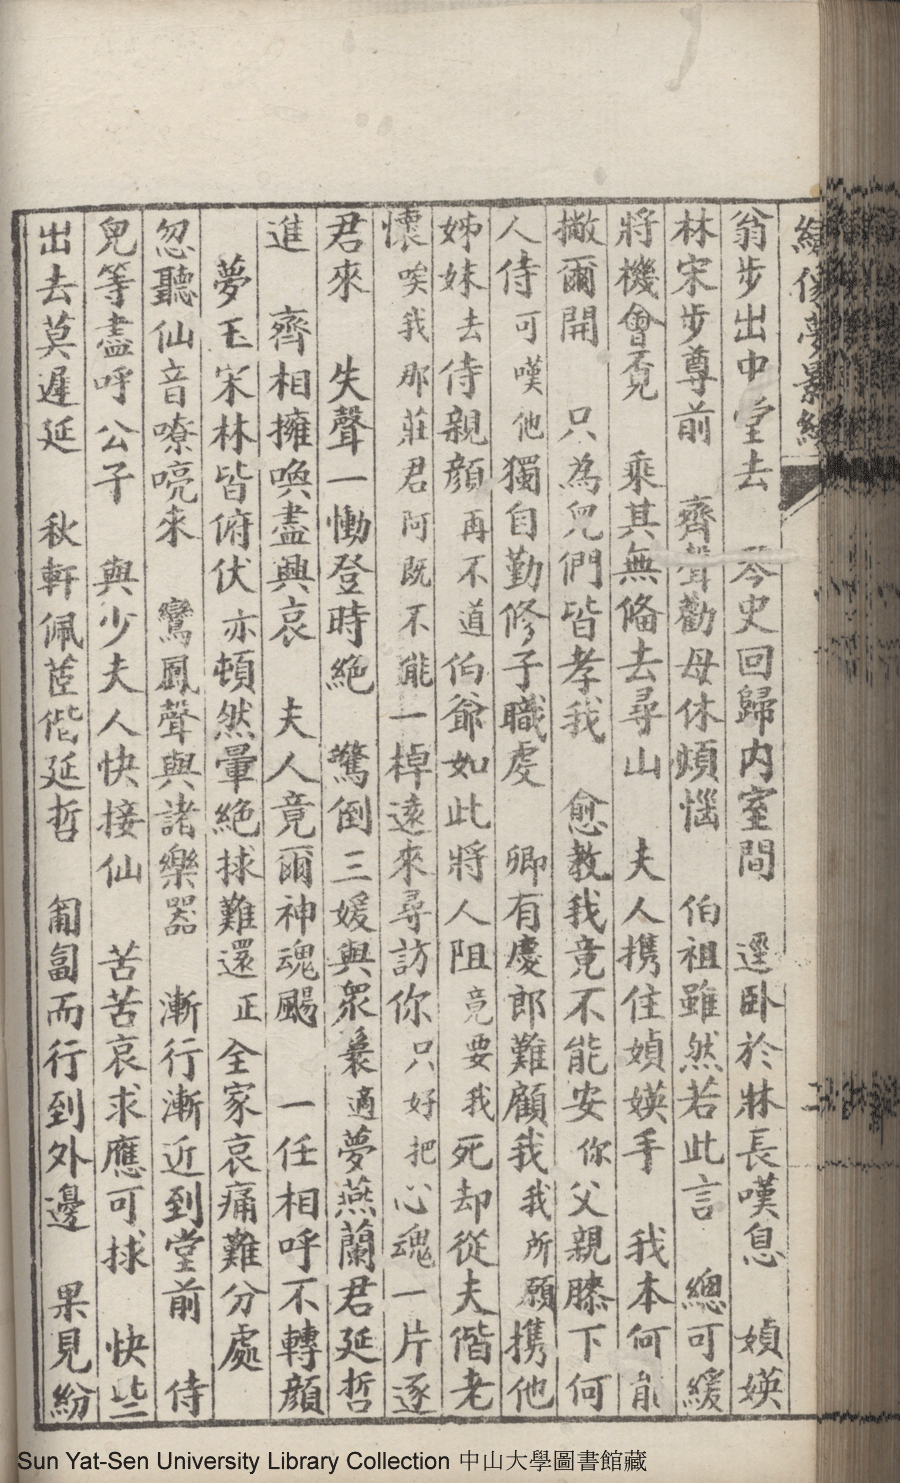 繡像夢影緣
翁步出中堂去 琴史回歸内室間 逕卧於牀長嘆息 媜媖
林宋步尊前 齊聲勸母休煩惱 伯祖雖然若此言 總可緩
將機會覔 乘其無俻去尋山 夫人携住媜媖手 我本何能
撇爾開 只為兒們皆孝我 愈教我竟不能安你父親膝下何
人侍可嘆他獨自勤修子職虔 卿有慶郎難顧我我所願携他
姊妹去侍親顔再不道伯爺如此將人阻竟要我死却從夫偕老
懷唉我那莊君阿既不能一棹遠來尋訪你只好把心魂一片逐
君來 失聲一慟登時絕 驚倒三媛與衆鬟適夢燕蘭君延哲
進 齊相擁喚盡興哀 夫人竟爾神魂颺 一任相呼不轉顔
夢玉宋林皆俯伏亦頓然暈絶捄難還正全家哀痛難分處
忽聽仙音嘹喨來 鸞鳳聲與諸樂器 漸行漸近到堂前 侍
兒等盡呼公子 與少夫人快接仙 苦苦哀求應可捄 快些
出去莫遲延 秋軒佩茝偕延哲 匍匐而行到外邊 果見紛
Sun Yat-Sen University Library Collection 中山大學圖書館藏